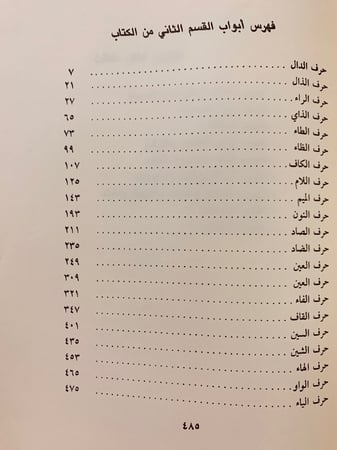 فهرس أبواب القسم الثاني من الكتاب
حرف الدال ........ ٧
حرف الذال ........ ٢١
حرف الراء ........ ٢٧
حرف الذاي ........ ٦٥
حرف الطاء ........ ٧٣
حرف الظاء ........ ٩٩
حرف الكاف ........ ١٠٧
حرف اللام ........ ١٢٥
حرف الميم ........ ١٤٣
حرف النون ........ ١٩٣
حرف الصاد ........ ٢١١
حرف الضاد ........ ٢٣٥
حرف العين ........ ٢٤٩
حرف العين ........ ٣٠٩
حرف الفاء ........ ٣٢١
حرف القاف ........ ٣٤٧
حرف السين ........ ٤٠١
حرف الشين ........ ٤٣٥
حرف الهاء ........ ٤٥٣
حرف الواو ........ ٤٦٥
حرف الياء ........ ٤٧٥
٤٨٥